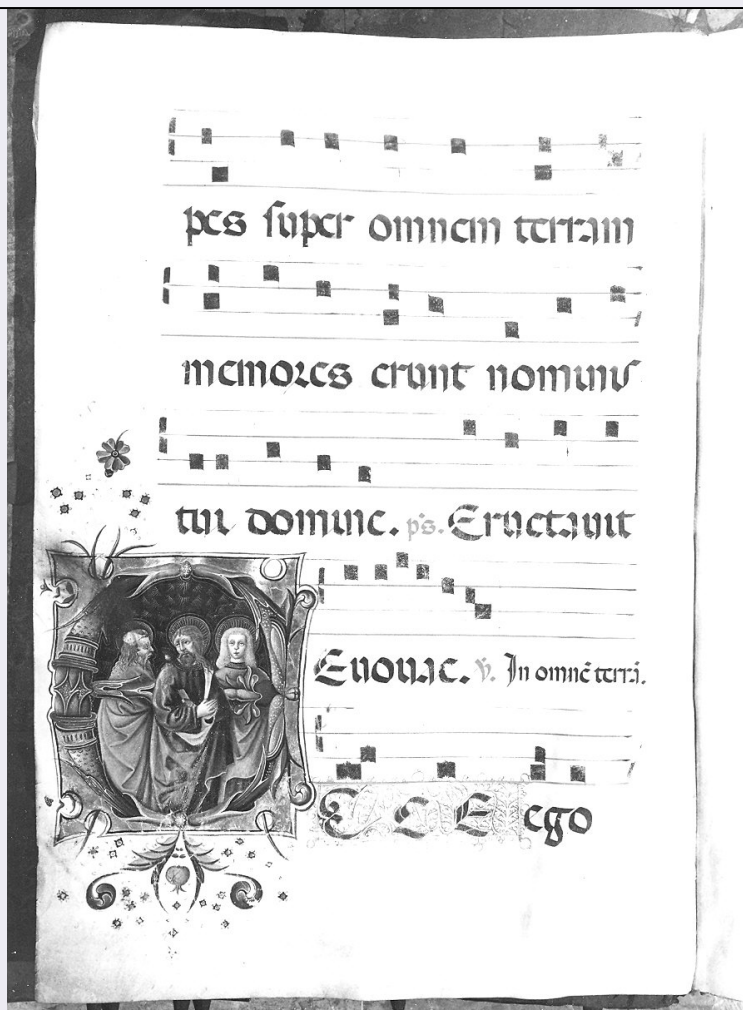 pes super omnem terram
memores erunt nominis
tui domine. ps. Eructauit
Euouae. V. In omnē terrā.
ECCE ego